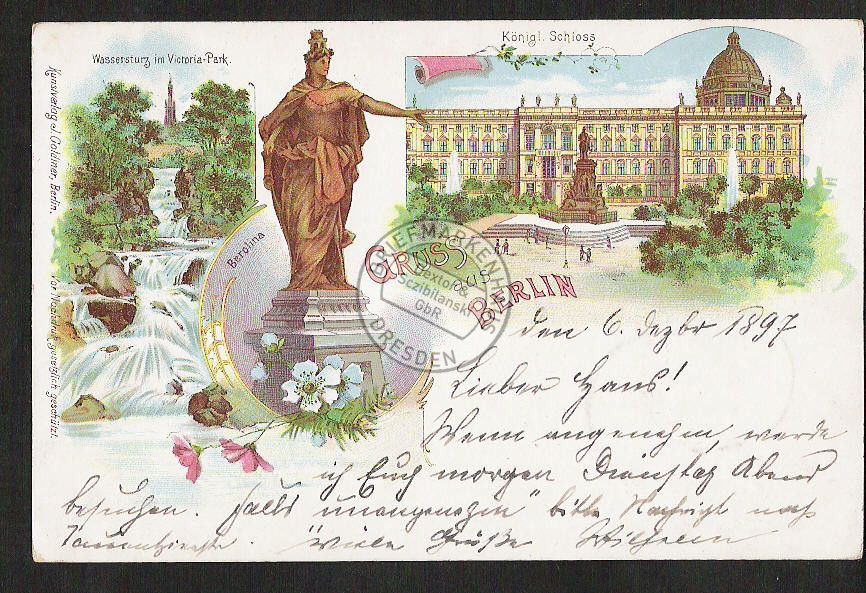 Königl. Schloss
Wassersturz im Victoria-Park.
Kunstverlag J. Goldiner, Berlin.
Vor Nachdruck gesetzlich geschützt.
Berolina
GRUSS
aus
BERLIN
BRIEFMARKENHAUS
Sextor &
Sczibilanski
GbR
DRESDEN
den 6. Dezbr 1897
Lieber Hans!
Wenn angenehm, werde
ich Euch morgen Dienstag Abend
besuchen. Falls "unangenehm" bitte Nachricht nach
Viele Grüße Wilhelm